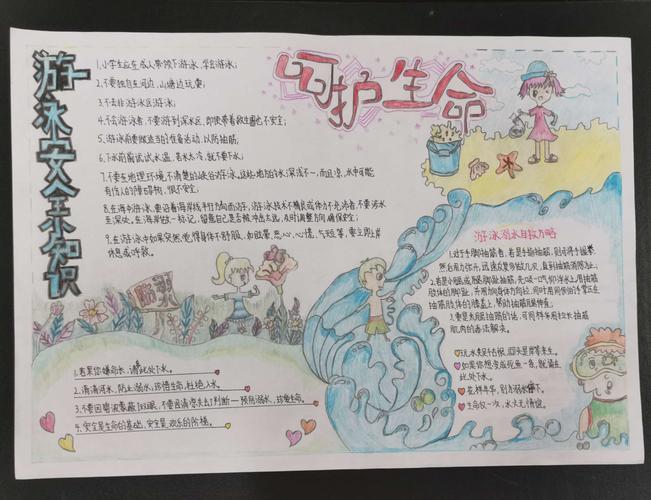 游泳安全小知识
呵护生命
1.小学生应在成人带领下游泳,学会游泳;
2.不要独自在河边、山塘边玩耍;
3.不去非游泳区游泳;
4.不会游泳者,不要游到深水区,即使带着救生圈也不安全;
5.游泳前要做适当的准备活动,以防抽筋;
6.下水前需试试水温,若水太冷,就不要下水;
7.不要在地理环境不清楚的峡谷游泳。这些地方的水深浅不一,而且凉,水中可能
有伤人的障碍物,很不安全;
8.在海中游泳,要沿着海岸线平行方向而游,游泳技术不精良或体力不充沛者,不要涉水
至深处。在海岸做一标记,留意自己是否被冲出太远,及时调整方向,确保安全;
9.在游泳中如果突然觉得身体不舒服,如眩晕、恶心、心慌、气短等,要立即上岸
休息或呼救。
防溺
1.若果你嫌命长,请到此处下水。
2.清清河水,防止溺水;珍惜生命,杜绝入水
4.安全是生命的基础,安全是欢乐的阶梯。
游泳溺水自救方略
1.对于手脚抽筋者,若是手指抽筋,则可将手握拳,
然后用力张开,迅速反复多做几次,直到抽筋消除为止;
2.若是小腿或脚趾抽筋,先吸一口气仰浮水上,用抽筋
肢体对侧的手握住抽筋
肢体的脚趾,并用力向身体方向拉,同时用同侧的手掌压在
抽筋肢体的膝盖上,帮助抽筋腿伸直;
3.要是大腿抽筋的话,可同样采用拉长抽筋
肌肉的办法解决。
如果你想变成死鱼一条,就留在
此处下水。
花样年华,别让溺水停下。
生命仅一次,水火无情流。